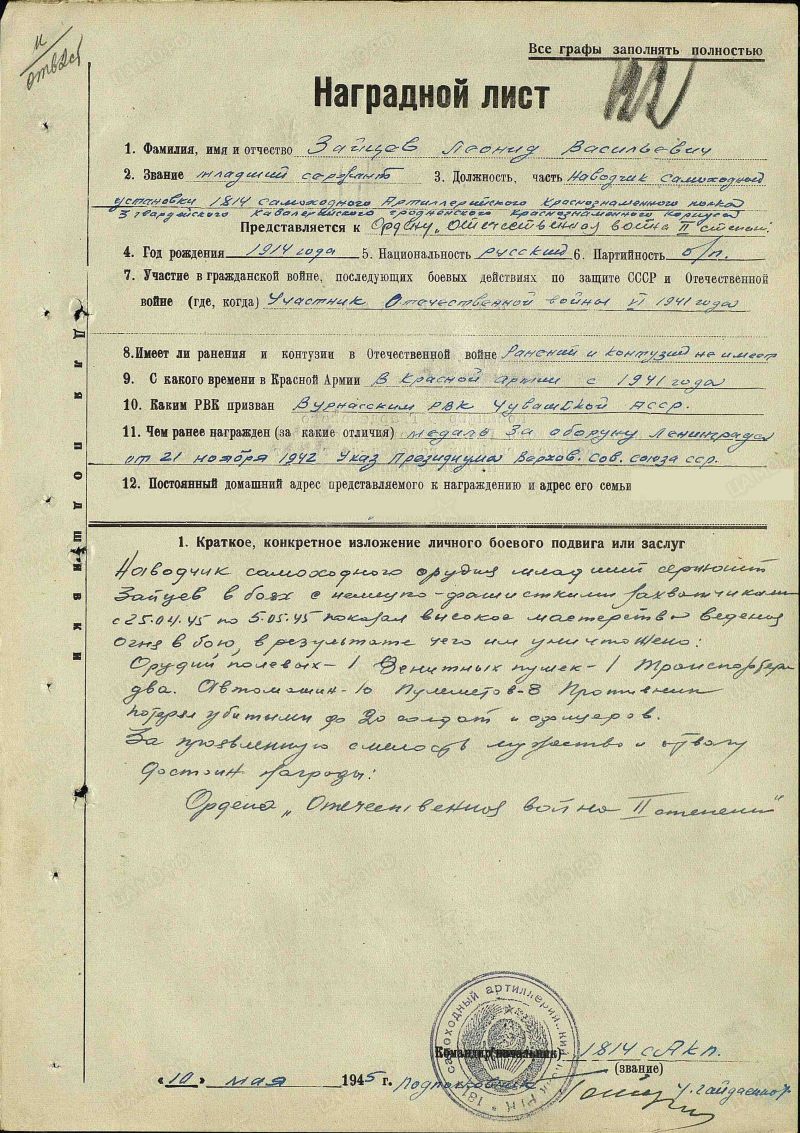 11/отв2ст
Все графы заполнять полностью
Наградной лист
1. Фамилия, имя и отчество Зайцев Леонид Васильевич
2. Звание младший сержант 3. Должность, часть Наводчик самоходной
установки 1814 самоходного Артиллерийского Краснознаменного полка
3 гвардейского Кавалерийского Гродненского Краснознаменного корпуса
Представляется к Ордену „Отечественная война II степени.
4. Год рождения 1914 года 5. Национальность русский 6. Партийность б/п.
7. Участие в гражданской войне, последующих боевых действиях по защите СССР и Отечественной
войне (где, когда) Участник Отечественной войны с VI 1941 года
8. Имеет ли ранения и контузии в Отечественной войне Ранений и контузий не имеет
9. С какого времени в Красной Армии В Красной армии с 1941 года
10. Каким РВК призван Вурнасским РВК Чувашской АССР.
11. Чем ранее награжден (за какие отличия) медаль За оборону Ленинграда
от 21 ноября 1942 Указ Президиума Верхов. Сов. Союза сср.
12. Постоянный домашний адрес представляемого к награждению и адрес его семьи
Для подшивки
1. Краткое, конкретное изложение личного боевого подвига или заслуг
Наводчик самоходного орудия младший сержант
Зайцев в боях с немецко-фашисткими захватчиками
с 25.04.45 по 5.05.45 показал высокое мастерство ведения
огня в бою, в результате чего им уничтожено:
Орудий полевых-1 Зенитных пушек-1 Транспортера
два. Автомашин-10 Пулеметов-3 Противник
потерял убитыми до 20 солдат и офицеров.
За проявленную смелость мужество и отвагу
достоин награды:
Ордена „Отечественная война II степени"
самоходный артиллерийский
Командир (начальник) 1814 сАп.
(звание)
„10„ мая 1945 г. Подполковник